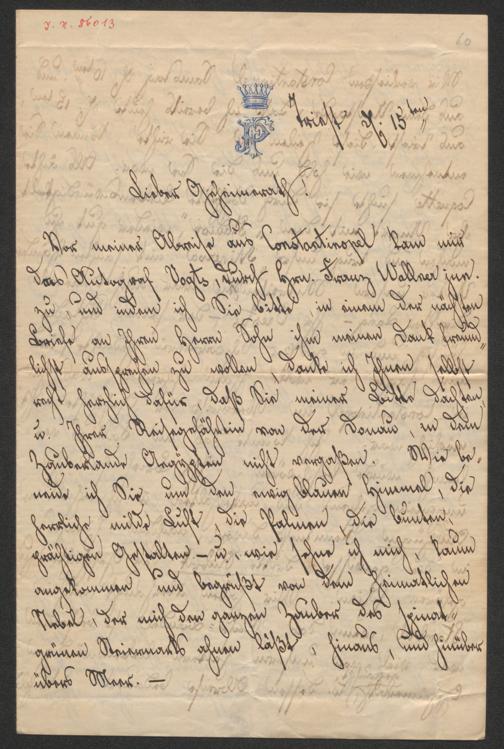 J. N. 86013
60
Triest 15ten
Lieber Geheimerath!
Vor meiner Abreise aus Constantinopel kam mir
das Autograf Vogts, durch Hrn. Franz Wallner jun.
zu, und indem ich Sie bitte, in einem der nächsten
Briefe an Ihren Herrn Sohn ihm meinen Dank freund„
lichst aussprechen zu wollen, danke ich Ihnen selbst
recht herzlich dafür, daß Sie meiner Bitte dachten,
u. Ihrer Reisegefährtin von der Donau, in dem
Zauberlande Aegÿpten nicht vergaßen. Wie be„
neide ich Sie um den ewig blauen Himmel, die
herrliche milde Luft, die Palmen, die bunten,
prächtigen Gestalten – u. wie sehne ich mich, kaum
angekommen und begrüßt von dem heimatlichen
Nebel, der mich den ganzen Zauber des spinat„
grünen Steiermarks ahnen läßt, hinaus, und hinüber
übers Meer. –